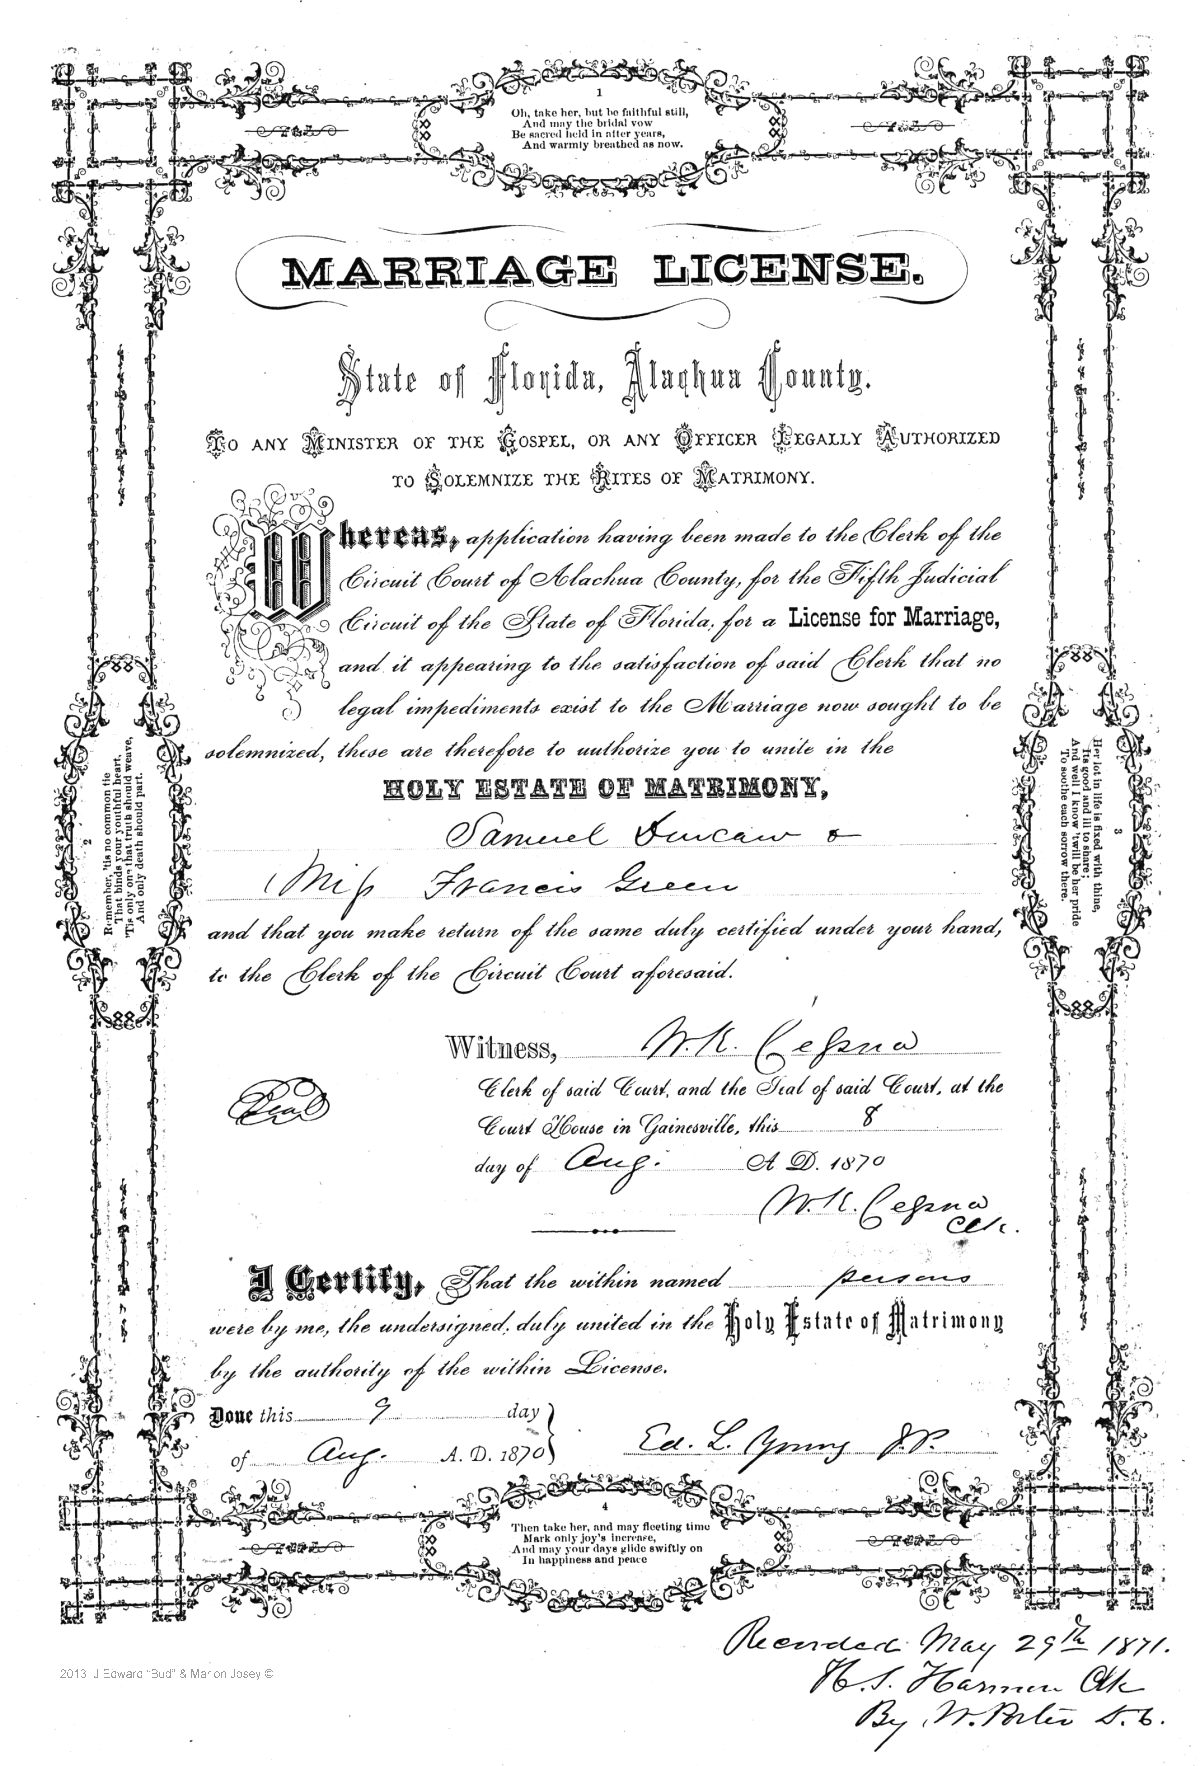 1
Oh, take her, but be faithful still,
And may the bridal vow
Be sacred held in after years,
And warmly breathed as now.
MARRIAGE LICENSE.
State of Florida, Alachua County.
TO ANY MINISTER OF THE GOSPEL, OR ANY OFFICER LEGALLY AUTHORIZED
TO SOLEMNIZE THE RITES OF MATRIMONY.
Whereas, application having been made to the Clerk of the
Circuit Court of Alachua County, for the Fifth Judicial
Circuit of the State of Florida, for a License for Marriage,
and it appearing to the satisfaction of said Clerk that no
legal impediments exist to the Marriage now sought to be
solemnized, these are therefore to authorize you to unite in the
HOLY ESTATE OF MATRIMONY,
Samuel Duncan &
Miss Francis Green
and that you make return of the same duly certified under your hand,
to the Clerk of the Circuit Court aforesaid.
Witness, W. K. Cessna
Clerk of said Court, and the Seal of said Court, at the
Seal
Court House in Gainesville, this 8
day of Aug. A. D. 1870
W. K. Cessna
Clk.
I Certify, That the within named persons
were by me, the undersigned, duly united in the Holy Estate of Matrimony
by the authority of the within License.
Done this 9 day
of Aug. A. D. 1870
Ed. L. Young J.P.
2
Remember, 'tis no common tie
That binds your youthful heart,
'Tis only one that truth should weave,
And only death should part.
3
Her lot in life is fixed with thine,
Its good and ill to share;
And well I know 'twill be her pride
To soothe each sorrow there.
4
Then take her, and may fleeting time
Mark only joy's increase,
And may your days glide swiftly on
In happiness and peace
Recorded May 29th 1871.
H. S. Harmon Clk
By W. Porter D. C.
2013 J Edward "Bud" & Marion Josey ©